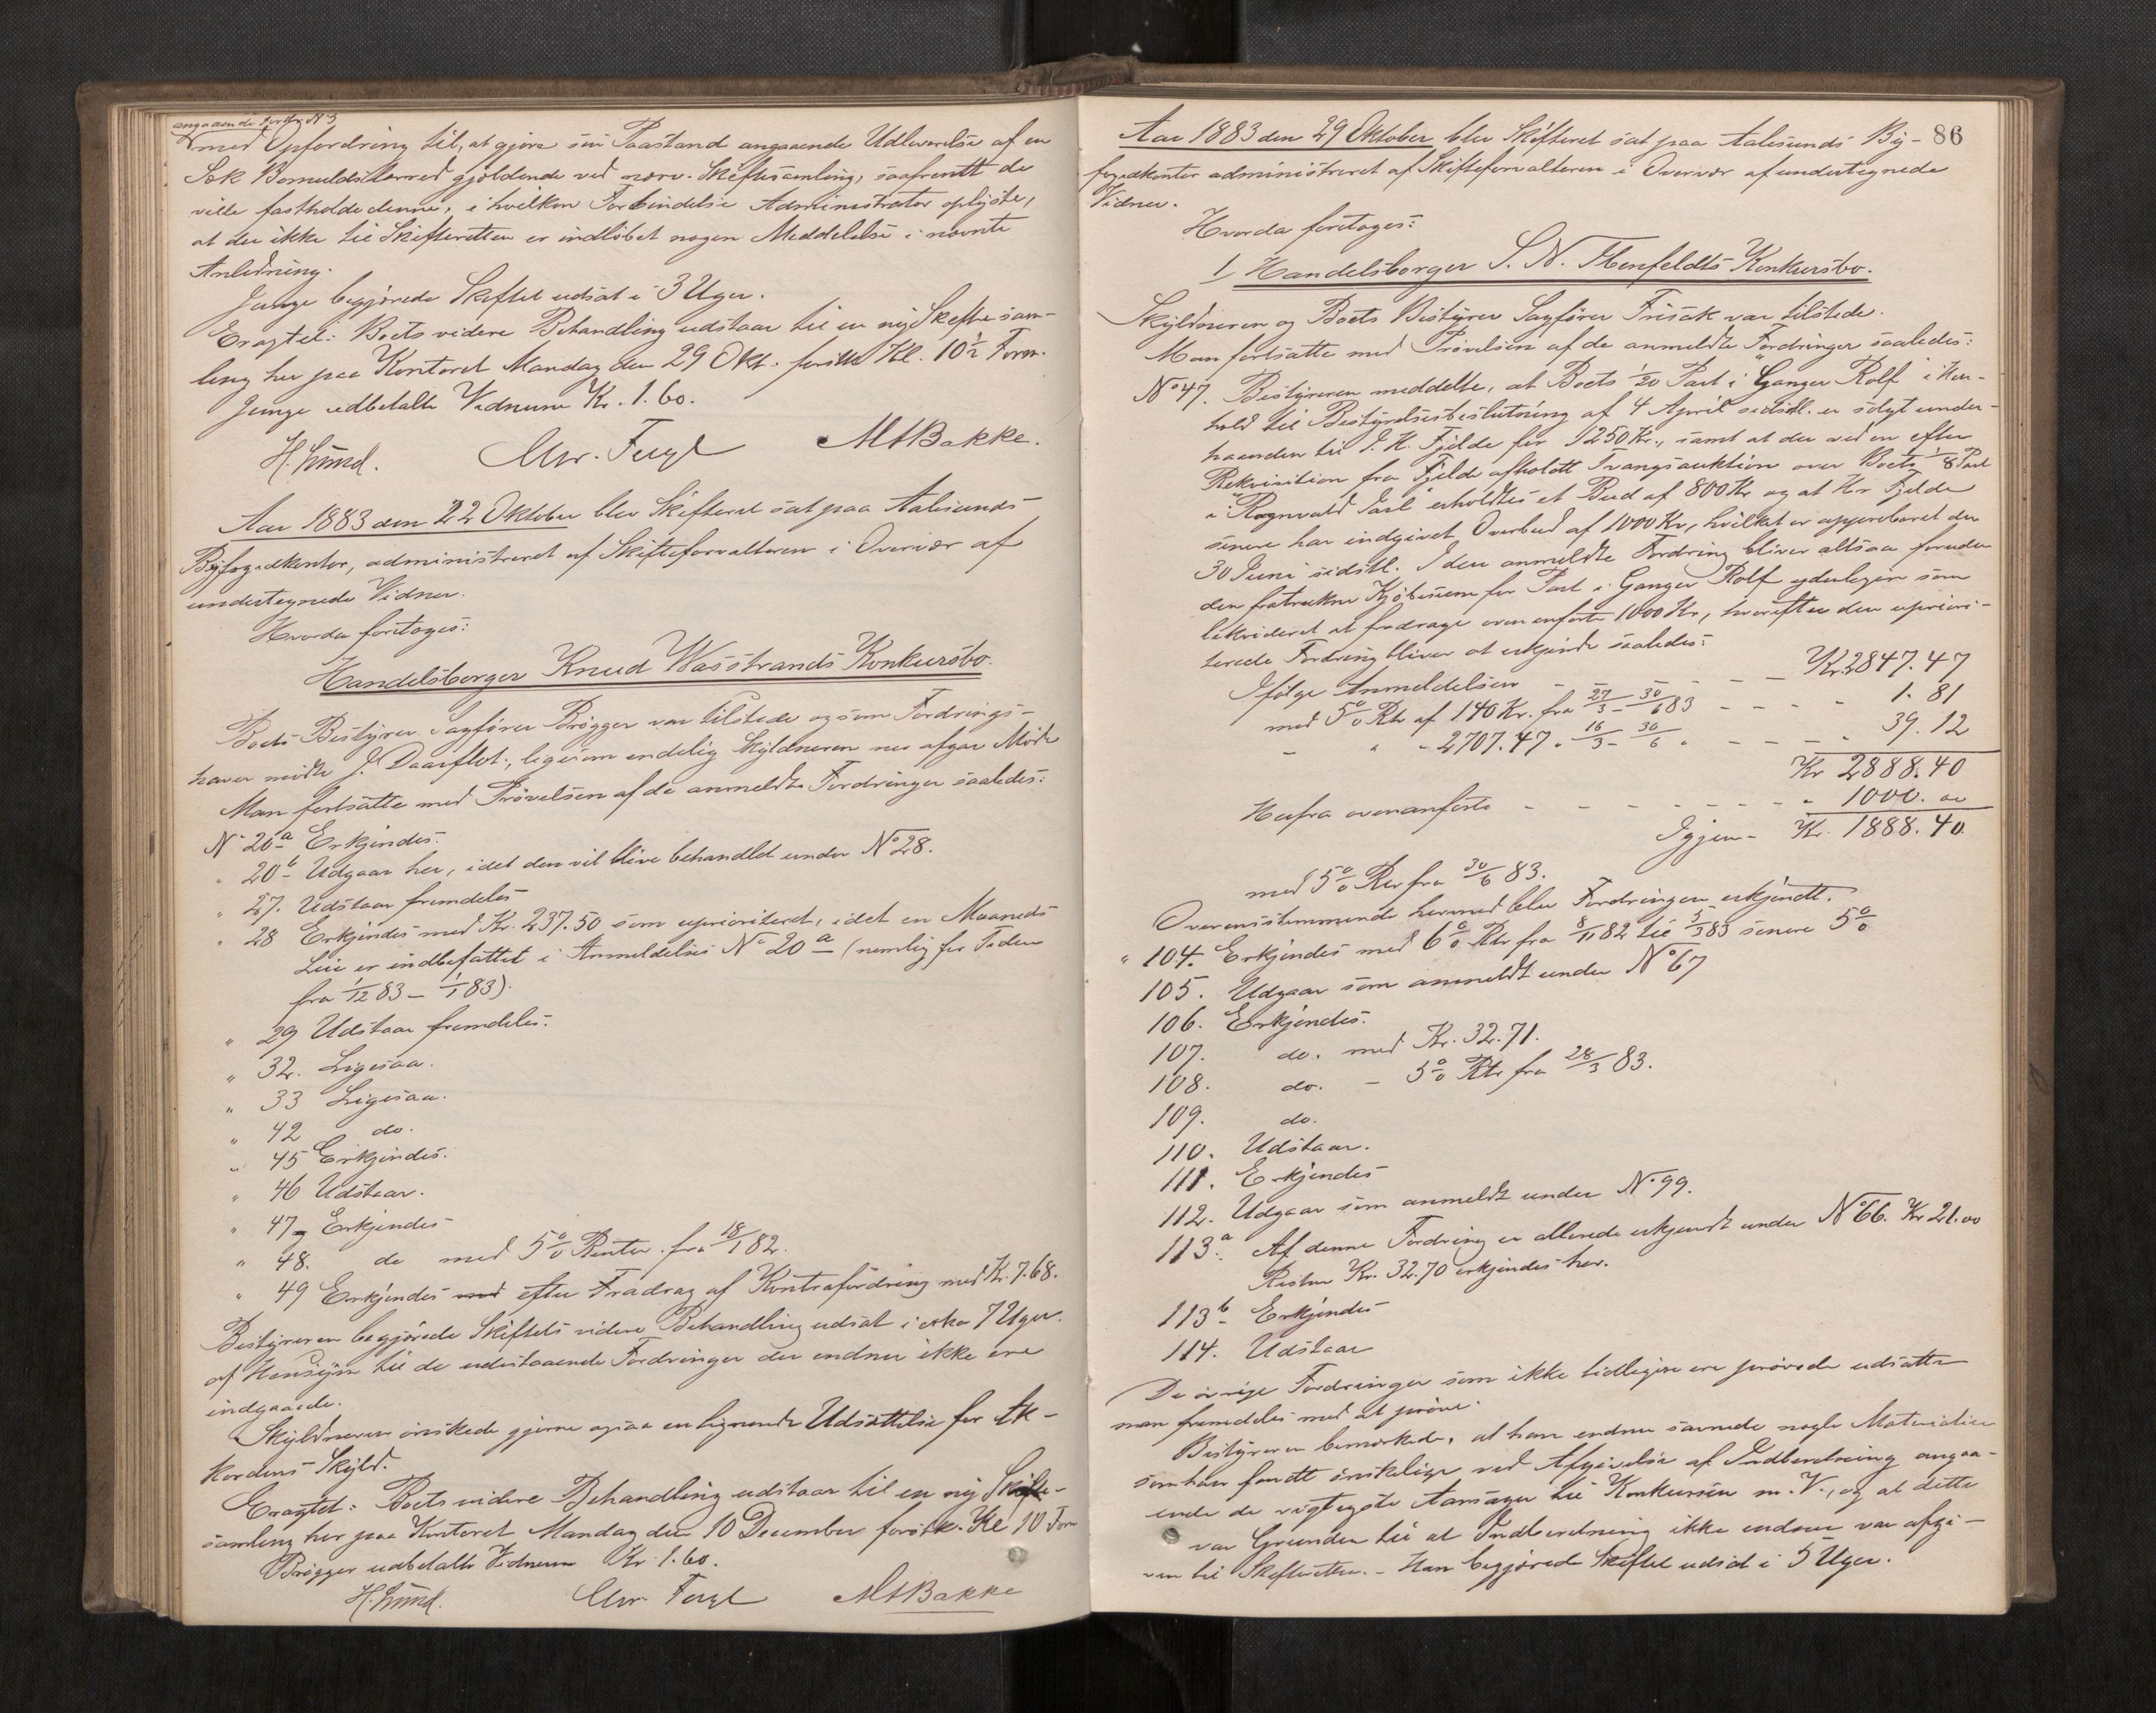 angaaende Fordr. N 5
med Opfordring til, at gjøre sin Paastand angaaende Udleverelse af en
Sæk Bomuldslærred gjældende ved nærv. Skiftesamling, saafremt de
ville fastholde denne, i hvilken Forbindelse Administrator oplyste,
at der ikke til Skifteretten er indløbet nogen Meddelelse i nævnte
Anledning.
Junge begjærede Skiftet udsat i 3 Uger.
Eragtet: Boets videre Behandling udstaar til en ny Skiftesam-
ling her paa Kontoret Mandag den 29 Okt. førstk Kl. 10½ Form.
Junge udbetalte Vidnerne Kr. 1.60.
H. Lund. Chr. M A Bakke.
Aar 1883 den 22 Oktober blev Skifteret sat paa Aalesunds
Byfogedkontor, administreret af Skifteforvalteren i Overvær af
undertegnede Vidner.
Hvorda foretoges:
Handelsborger Knud Wasstrands Konkursbo.
Boets Bestyrer Sagfører Brøgger var tilstede og som Fordrings-
haver mødte J. Daarflot, ligesom endelig Skyldneren nu afgav Møde
Man fortsatte med Prøvelsen af de anmeldte Fordringer saaledes:
N° 20 a Erkjendes.
" 20 b Udgaar her, idet den vil blive behandlet under N° 28.
" 27. Udstaar fremdeles
" 28 Erkjendes med Kr. 237.50 som uprioriteret, idet en Maaneds
Leie er indbefattet i Anmeldelse N° 20 a (nemlig for Tiden
fra 1/12 83 – 1/1 83).
" 29 Udstaar fremdeles.
" 32. Ligesaa.
" 33 Ligesaa.
" 42 do.
" 45 Erkjendes.
" 46 Udstaar.
" 47 Erkjendes
" 48. do med 5 % Renter fra 18/1 82.
" 49 Erkjendes med efter Fradrag af Kontrafordring med Kr. 7.68.
Bestyreren begjærede Skiftets videre Behandling udsat i cirka 7 Uger
af Hensyn til de udestaaende Fordringer der endnu ikke ere
indgaaede.
Skyldneren ønskede gjerne ogsaa en lignende Udsættelse for Ak-
kordens Skyld.
Eragtet: Boets videre Behandling udstaar til en ny Skifte-
samling her paa Kontoret Mandag den 10 December førstk. Kl 10 Form
Brøgger udbetalte Vidnerne Kr. 1.60.
H. Lund. Chr. M A Bakke
86
Aar 1883 den 29 Oktober blev Skifteret sat paa Aalesunds By-
fogedkontor administreret af Skifteforvalteren i Overvær af undertegnede
Vidner.
Hvorda foretoges:
1/ Handelsborger S. N. Konkursbo.
Skyldneren og Boets Bestyrer Sagfører Frisak var tilstede.
Man fortsatte med Prøvelsen af de anmeldte Fordringer saaledes:
N° 47. Bestyreren meddelte, at Boets 1/20 Part i "Ganger Rolf" i Hen-
hold til Bestyrelsesbeslutning af 4 April sidstl. er solgt under-
haanden til J. K. Fjelde for 1250 Kr., samt at der ved en efter
Rekvisition fra Fjelde afholdt Tvangsauktion over Boets 1/8 Part
i "Ragnvald Jarl" erholdtes et Bud af 800 Kr og at Hr Fjelde
senere har indgivet Overbud af 1000 Kr, hvilket er approberet den
30 Juni sidstl. I den anmeldte Fordring bliver altsaa foruden
den fratrukne Kjøbesum for Part i Ganger Rolf yderligere som
likvideret at fradrage ovenanførte 1000 Kr, hvorefter den upriori-
terede Fordring bliver at erkjende saaledes:
Ifølge Anmeldelsen – – – – – Kr. 2847.47
med 5 % Rte af 140 Kr. fra 27/3 – 30/6 83 – – – – " 1.81
– " – 2707.47 " 16/3 – 30/6 " – – – – " 39.12
Kr 2888.40
Herfra ovenanførte – – – – – – – " 1000.00
Igjen – Kr. 1888.40.
med 5 % Rter fra 30/6 83.
Overensstemmende hermed blev Fordringen erkjendt.
" 104. Erkjendes med 6 % Rte fra 8/11 82 til 5/3 83 senere 5 %
105. Udgaar som anmeldt under N° 67
106. Erkjendes.
107. do. med Kr. 32.71.
108. do. – 5 % Rte fra 28/3 83.
109. do.
110. Udstaar.
111. Erkjendes
112. Udgaar som anmeldt under N° 99.
113 a. Af denne Fordring er allerede erkjendt under N° 66. Kr 21.00
Resten Kr. 32.70 erkjendes her.
113 b Erkjendes
114. Udstaar
De øvrige Fordringer som ikke tidligere ere prøvede udsatte
man fremdeles med at prøve.
Bestyreren bemærkede, at han endnu savnede nogle Materialier
som han fandt ønskelige ved Afgivelse af Indberetning angaa-
ende de vigtigste Aarsager til Konkursen m. V., og at dette
var Grunden til at Indberetning ikke endnu var afgi-
ven til Skifteretten. – Han begjærede Skiftet udsat i 5 Uger.